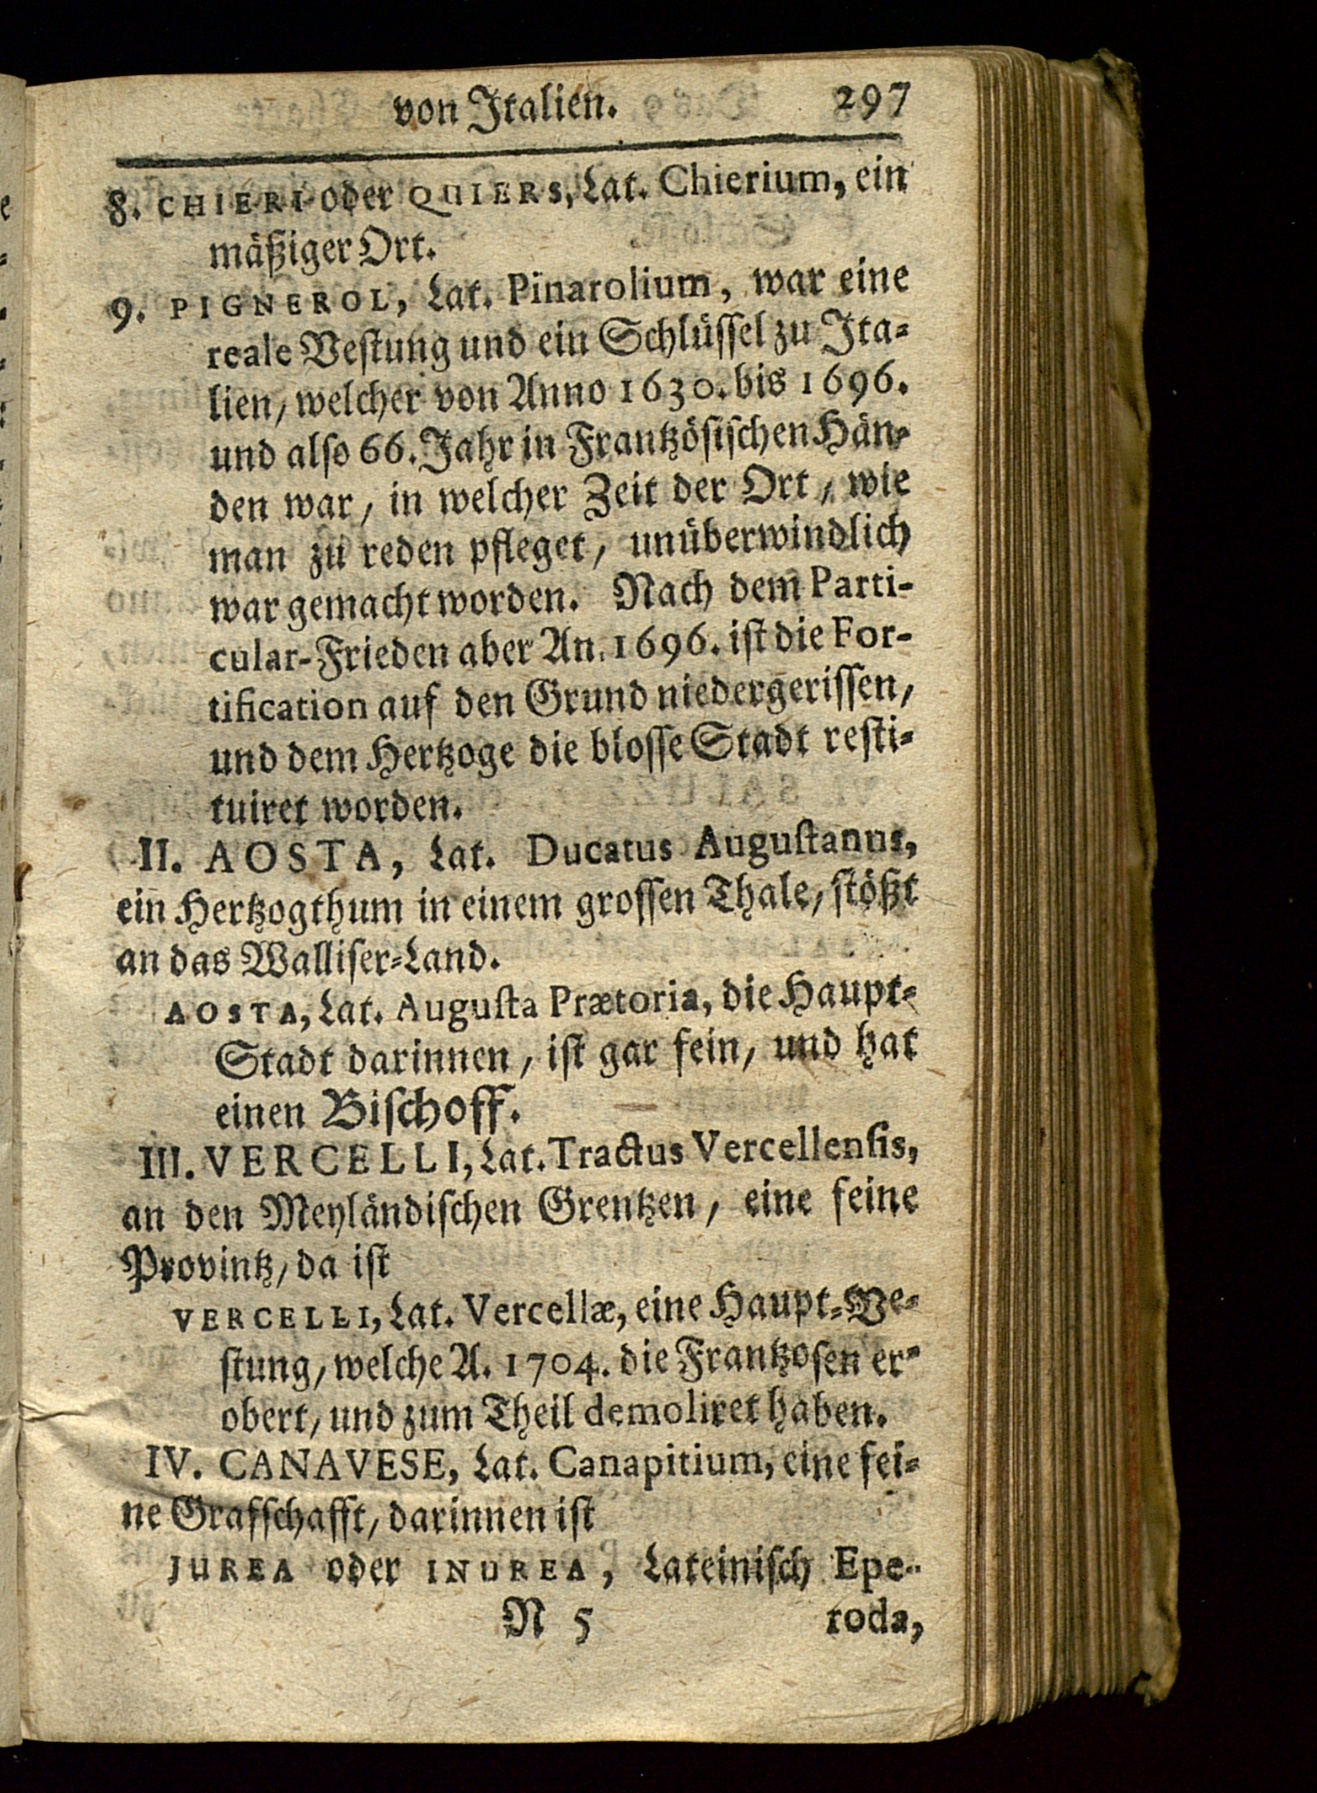 von Italien. 297
8. CHIERI oder QUIERS, Lat. Chierium, ein
mäßiger Ort.
9. PIGNEROL, Lat. Pinarolium, war eine
reale Vestung und ein Schlüssel zu Ita-
lien, welcher von Anno 1630. bis 1696.
und also 66. Jahr in Frantzösischen Hän-
den war, in welcher Zeit der Ort, wie
man zu reden pfleget, unüberwindlich
war gemacht worden. Nach dem Parti-
cular-Frieden aber An. 1696. ist die For-
tification auf den Grund niedergerissen,
und dem Hertzoge die blosse Stadt resti-
tuiret worden.
II. AOSTA, Lat. Ducatus Augustanus,
ein Hertzogthum in einem grossen Thale, stößt
an das Walliser-Land.
AOSTA, Lat. Augusta Prætoria, die Haupt-
Stadt darinnen, ist gar fein, und hat
einen Bischoff.
III. VERCELLI, Lat. Tractus Vercellensis,
an den Meyländischen Grentzen, eine feine
Provintz, da ist
VERCELLI, Lat. Vercellæ, eine Haupt-Ve-
stung, welche A. 1704. die Frantzosen er-
obert, und zum Theil demoliret haben.
IV. CANAVESE, Lat. Canapitium, eine fei-
ne Grafschafft, darinnen ist
JUREA oder INUREA, Lateinisch Epe-
N 5 roda,